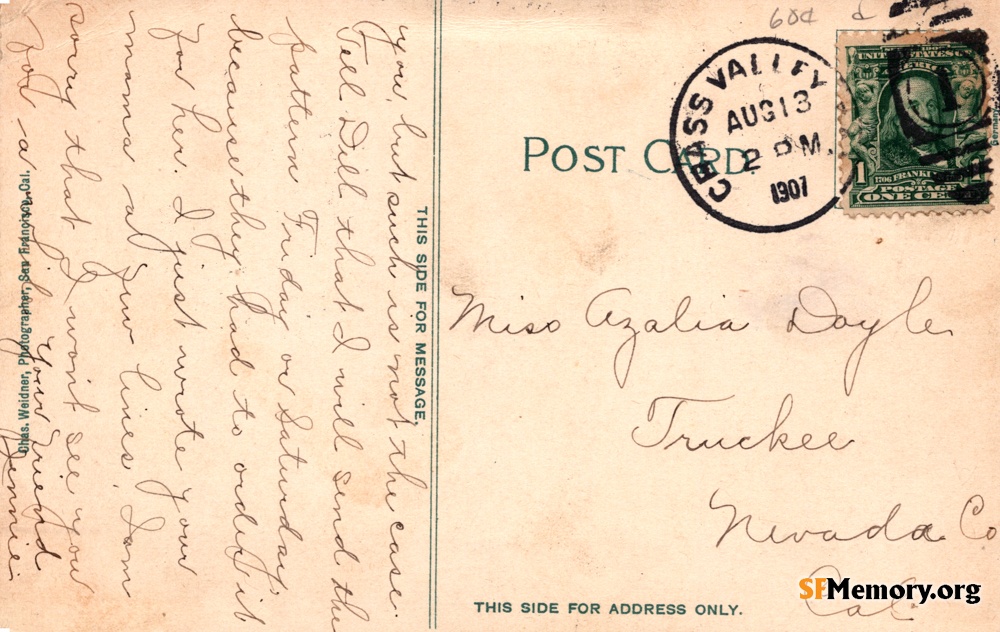 you, but such is not the case.
Tell Dell that I will send the
pattern Friday or Saturday,
because they had to order it
for her. I just wrote your
mama a few lines. I am
sorry that I won't see you
for a
your Friend
Jennie.
THIS SIDE FOR MESSAGE.
Chas. Weidner, Photographer, San Francisco, Cal.
60¢
POST CARD
GRASS VALLEY
AUG 13
2 PM.
1907
UNITED STATES OF AMERICA
1
1706 FRANKLIN
POSTAGE
ONE CENT
Germany
Miss Azalia Doyle
Truckee
Nevada Co
Cal.
THIS SIDE FOR ADDRESS ONLY.
SFMemory.org